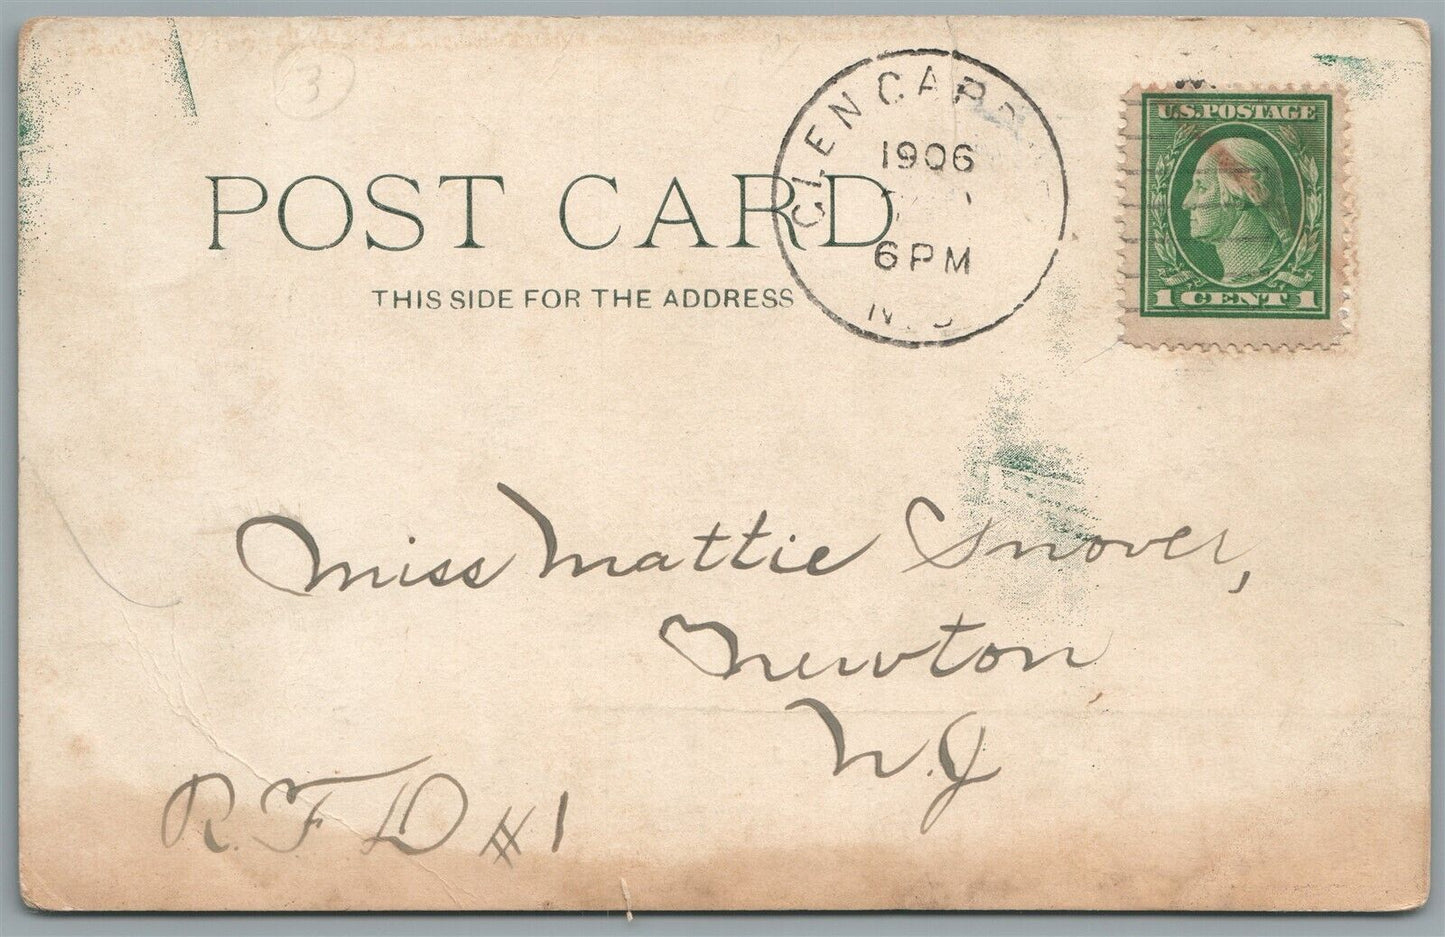 3
POST CARD
THIS SIDE FOR THE ADDRESS
1906
6 PM
U.S. POSTAGE
1 CENT 1
Miss Mattie Snover,
Newton
N.J.
R.F.D #1